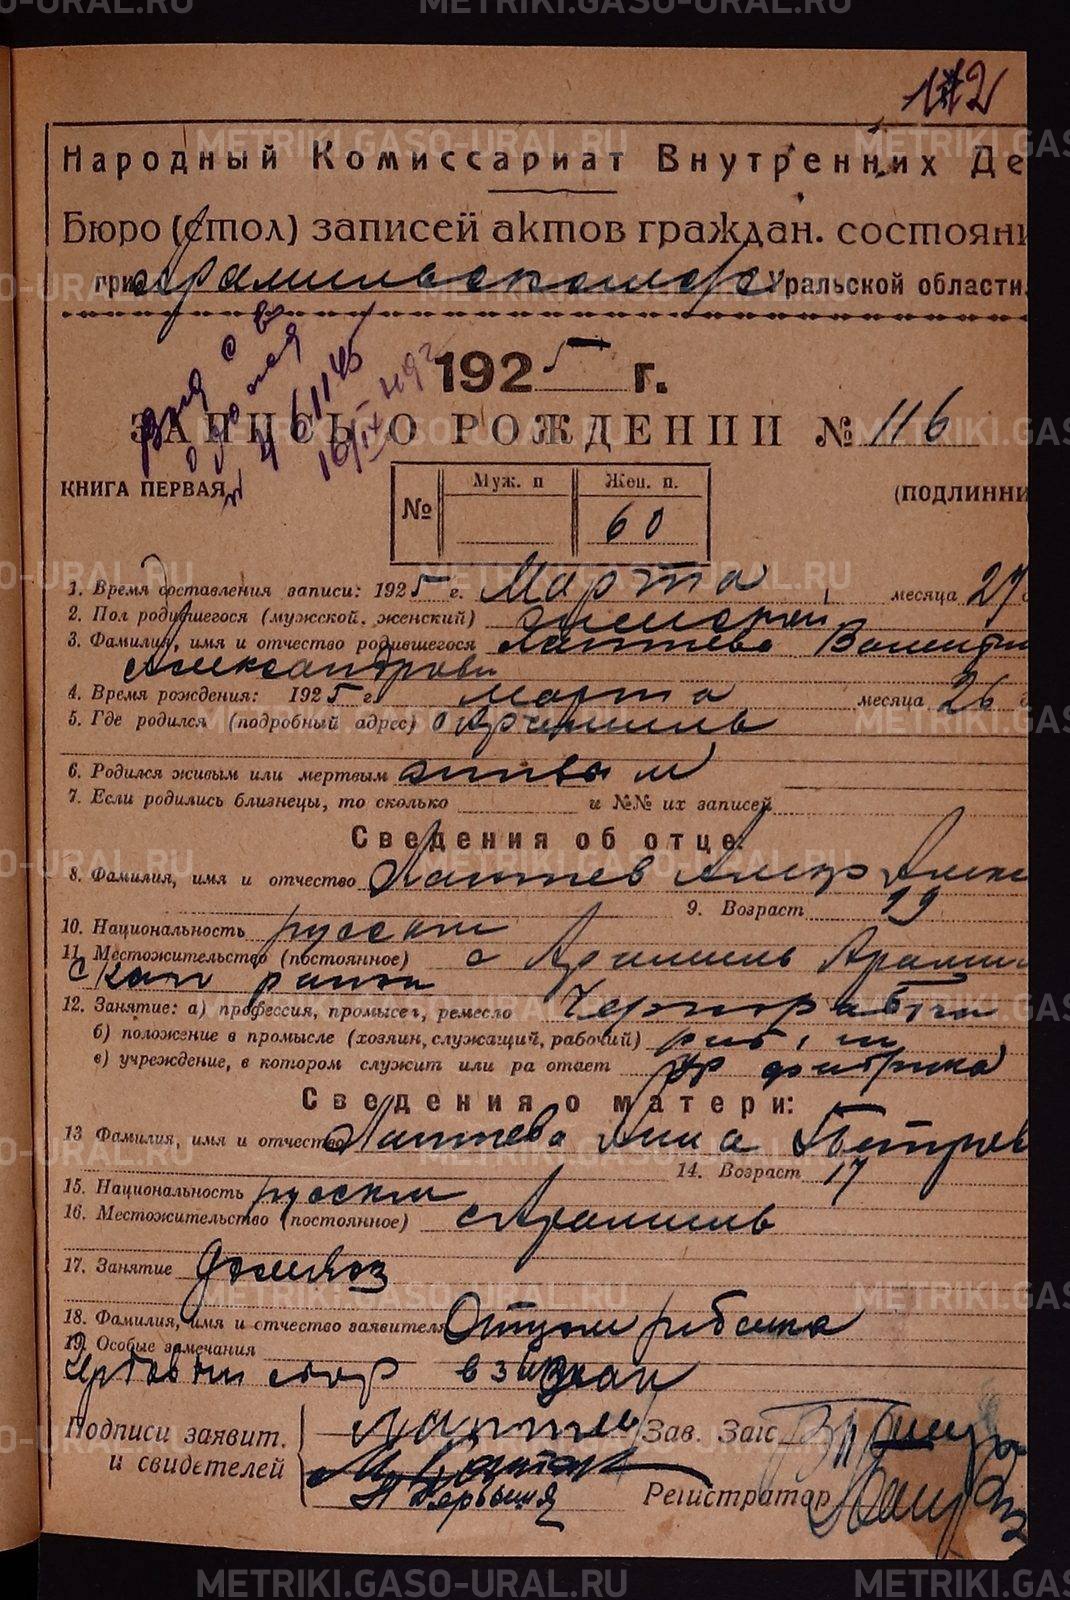 112
Народный Комиссариат Внутренних Де
Бюро (стол) записей актов граждан. состояни
при Арамильском Уральской области.
1925 г.
ЗАПИСЬ О РОЖДЕНИИ № 116
КНИГА ПЕРВАЯ (ПОДЛИННИ
№ Муж. п Жен. п.
60
1. Время составления записи: 1925 г. Марта месяца 27
2. Пол родившегося (мужской, женский) женский
3. Фамилия, имя и отчество родившегося Лаптева Валентин
Александров
4. Время рождения: 1925 г. марта месяца 26
5. Где родился (подробный адрес) с Арамиль
6. Родился живым или мертвым живым
7. Если родились близнецы, то сколько и №№ их записей
Сведения об отце:
8. Фамилия, имя и отчество Лаптев Алекр Алекс
9. Возраст 19
10. Национальность русский
11. Местожительство (постоянное) с Арамиль Арамил
ского района
12. Занятие: а) профессия, промысел, ремесло Чернораб
б) положение в промысле (хозяин, служащий, рабочий) раб
в) учреждение, в котором служит или ра отает фабрика
Сведения о матери:
13 Фамилия, имя и отчество Лаптева Анна Петров
14. Возраст 17
15. Национальность русская
16. Местожительство (постоянное) с Арамиль
17. Занятие домхоз
18. Фамилия, имя и отчество заявителя Отцом ребенка
19. Особые замечания
Гербовый сбор взыскан
Подписи заявит. Лаптев Зав. Загс
и свидетелей
Регистратор
METRIKI.GASO-URAL.RU